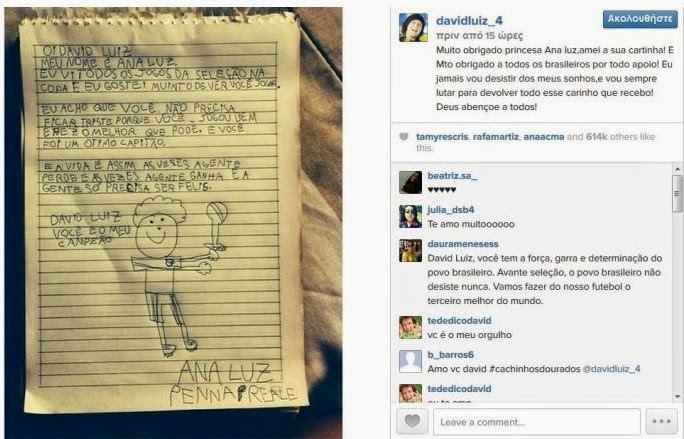 OI DAVID LUIZ
MEU NOME E ANA LUZ.
EU VI TODOS OS JOGOS DA SELEÇÃO NA
COPA E EU GOSTEI MUINTO DE VER VOCÊ JOGAR.
EU ACHO QUE VOCÊ NÃO PRECISA
FICAR TRISTE PORQUE VOCÊ JOGOU BEM
E FEZ O MELHOR QUE PODE. E VOCÊ
FOI UM OTIMO CAPITÃO.
E A VIDA É ASSIM AS VESES AGENTE
PERDE E AS VEZES AGENTE GANHA E A
GENTE SO PRECISA SER FELIS.
DAVID LUIZ
VOCÊ E O MEU
CANPEÃO
ANA LUZ
PENNA PREALE
davidluiz_4
Ακολουθήστε
πριν από 15 ώρες
Muito obrigado princesa Ana luz,amei a sua cartinha! E
Mto obrigado a todos os brasileiros por todo apoio! Eu
jamais vou desistir dos meus sonhos,e vou sempre
lutar para devolver todo esse carinho que recebo!
Deus abençoe a todos!
tamyrescris, rafamartiz, anaacma and 614k others like
this.
beatriz.sa_
♥♥♥♥♥
julia_dsb4
Te amo muitoooooo
dauramenesess
David Luiz, você tem a força, garra e determinação do
povo brasileiro. Avante seleção, o povo brasileiro não
desiste nunca. Vamos fazer do nosso futebol o
terceiro melhor do mundo.
tededicodavid
vc é o meu orgulho
b_barros6
Amo vc david #cachinhosdourados @davidluiz_4
tededicodavid
eu te amo
Leave a comment...